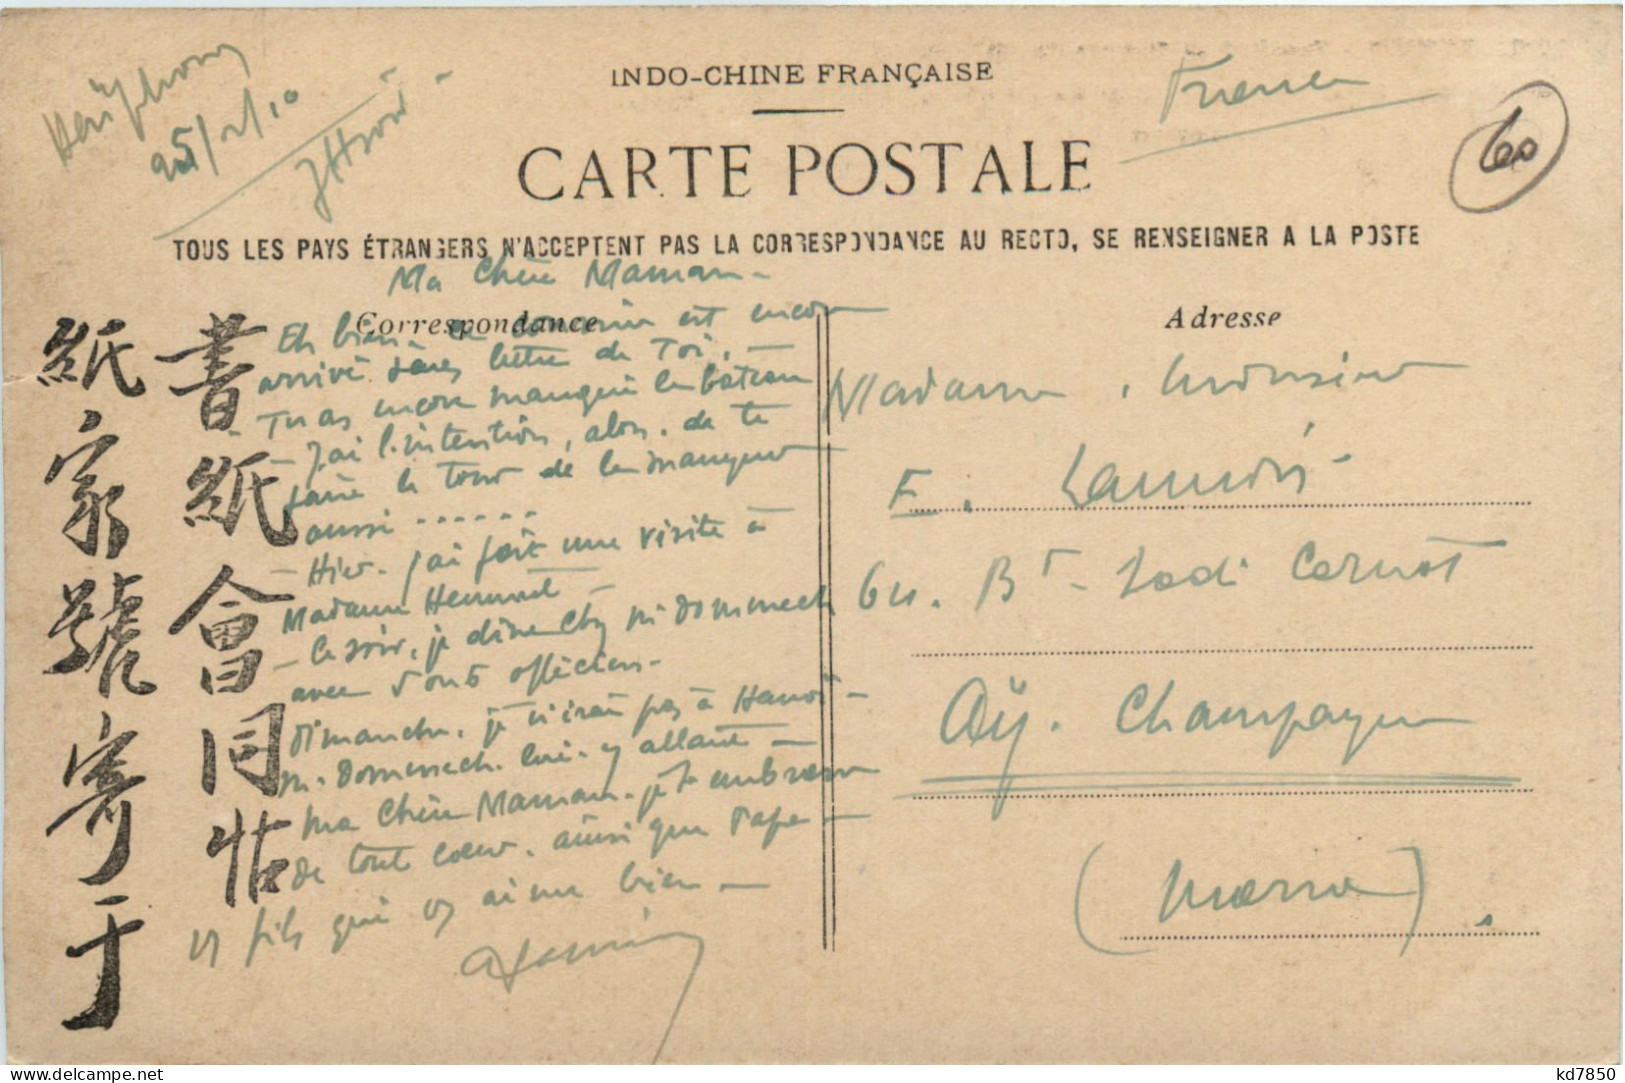 Haïphong
25/2/10
INDO-CHINE FRANÇAISE
France
60
CARTE POSTALE
TOUS LES PAYS ÉTRANGERS N'ACCEPTENT PAS LA CORRESPONDANCE AU RECTO, SE RENSEIGNER A LA POSTE
Correspondance
Adresse
書紙會同帖
紙家號寄于
Ma Chère Maman -
Eh bien, le courrier est encore
arrivé sans lettre de Toi. -
- Tu as encore manqué le bateau
- J'ai l'intention, alors, de te
faire le tour de le manquer
aussi ......
- Hier, j'ai fait une visite à
Madame -
- Ce soir, je dîne chez Mr Dommech
avec officiers -
Dimanche, je n'irai pas à Hanoï -
Mr Dommech, lui, y allant -
Ma Chère Maman, je t'embrasse
de tout coeur, ainsi que Papa -
Ton fils qui vs aime bien -
Madame, Monsieur
F.
64. Bt - Sadi Carnot
Aÿ. Champagne
(Marne).
kd7850